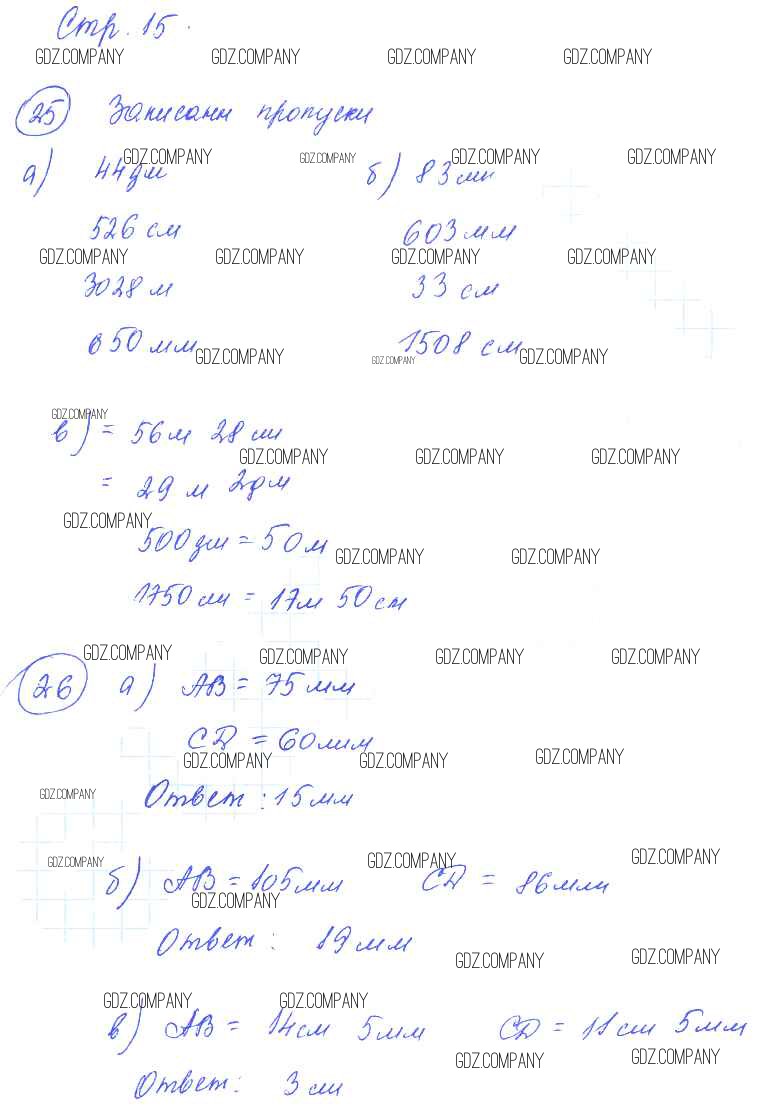 Стр. 15.
GDZ.COMPANY GDZ.COMPANY GDZ.COMPANY GDZ.COMPANY
25 Записани пропуски
GDZ.COMPANY GDZ.COMPANY GDZ.COMPANY GDZ.COMPANY
а) 44дм б) 83мм
526 см 603 мм
GDZ.COMPANY GDZ.COMPANY GDZ.COMPANY GDZ.COMPANY
3028 м 33 см
650 мм 1508 см
GDZ.COMPANY GDZ.COMPANY GDZ.COMPANY
GDZ.COMPANY
в) = 56м 28 см
GDZ.COMPANY GDZ.COMPANY GDZ.COMPANY
= 29 м 2дм
GDZ.COMPANY
500дм = 50м
GDZ.COMPANY GDZ.COMPANY
1750см = 17м 50см
GDZ.COMPANY GDZ.COMPANY GDZ.COMPANY GDZ.COMPANY
26 а) АВ = 75мм
СD = 60мм
GDZ.COMPANY GDZ.COMPANY GDZ.COMPANY
GDZ.COMPANY
Ответ: 15мм
GDZ.COMPANY GDZ.COMPANY GDZ.COMPANY
б) АВ = 105мм СD = 86мм
GDZ.COMPANY
Ответ: 19мм
GDZ.COMPANY GDZ.COMPANY
GDZ.COMPANY GDZ.COMPANY
в) АВ = 14см 5мм СD = 11см 5мм
GDZ.COMPANY GDZ.COMPANY
Ответ: 3см